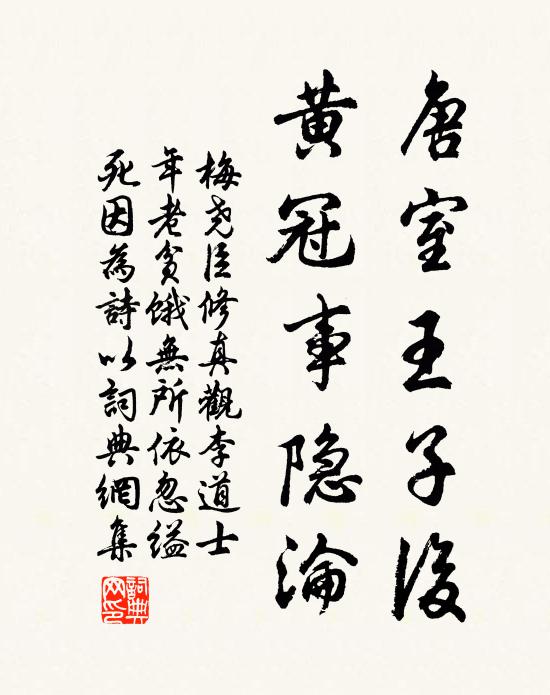 唐室王子後
黃冠事隐淪
梅尧臣修真觀李道士
年老貧餓無所依忽縊
死因為詩以詞典網集
詞典网印